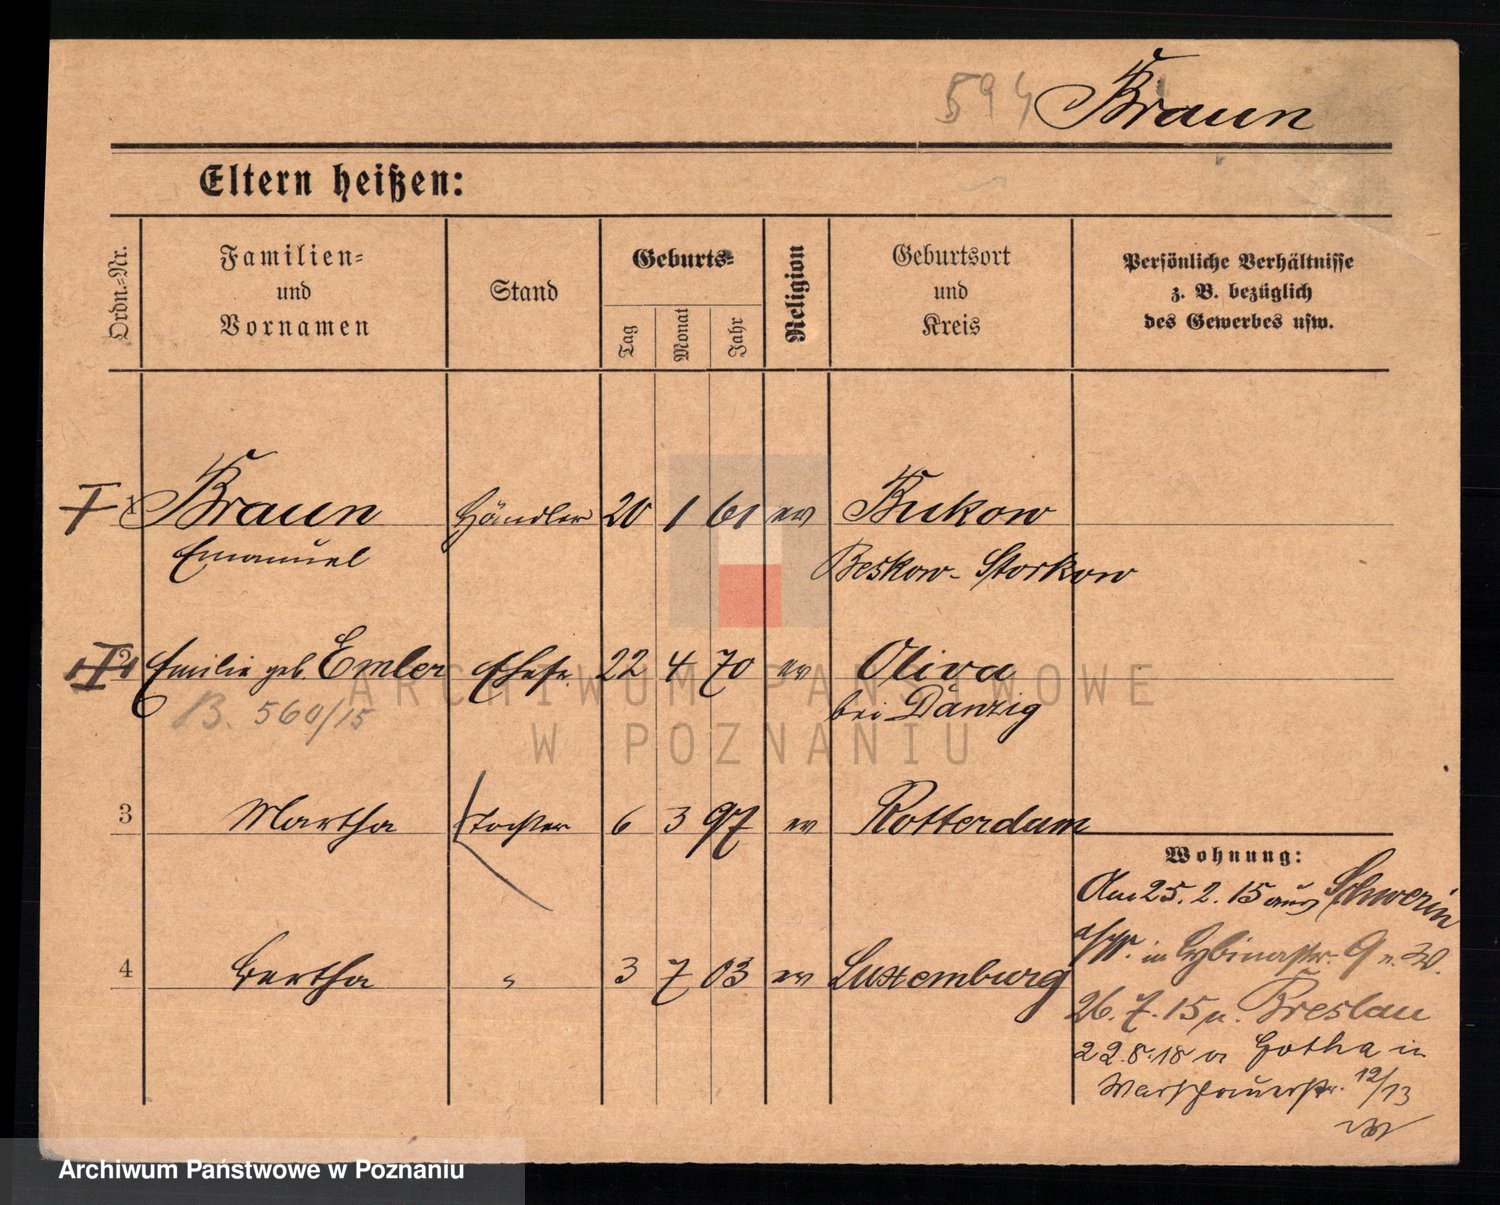 594 Braun
Eltern heißen:
Ordn.-Nr.
Familien-
und
Vornamen
Stand
Geburts-
Tag
Monat
Jahr
Religion
Geburtsort
und
Kreis
Persönliche Verhältnisse
z. B. bezüglich
des Gewerbes usw.
I Braun Händler 20 1 61 ev Bukow
Emanuel Beskow-Storkow
2 Emilie geb. Emler Ehefr. 22 4 70 ev Oliva
B. 560/15 bei Danzig
3 Martha Tochter 6 3 97 ev Rotterdam
4 Bertha " 3 7 03 ev Luxemburg
Wohnung:
Am 25. 2. 15 aus Schwerin
a/W. in Cybinastr. 9 n. W.
26. 7. 15 n. Breslau
22.8.18 v Gotha in
Warschauerstr. 12/13
ARCHIWUM PAŃSTWOWE
W POZNANIU
Archiwum Państwowe w Poznaniu